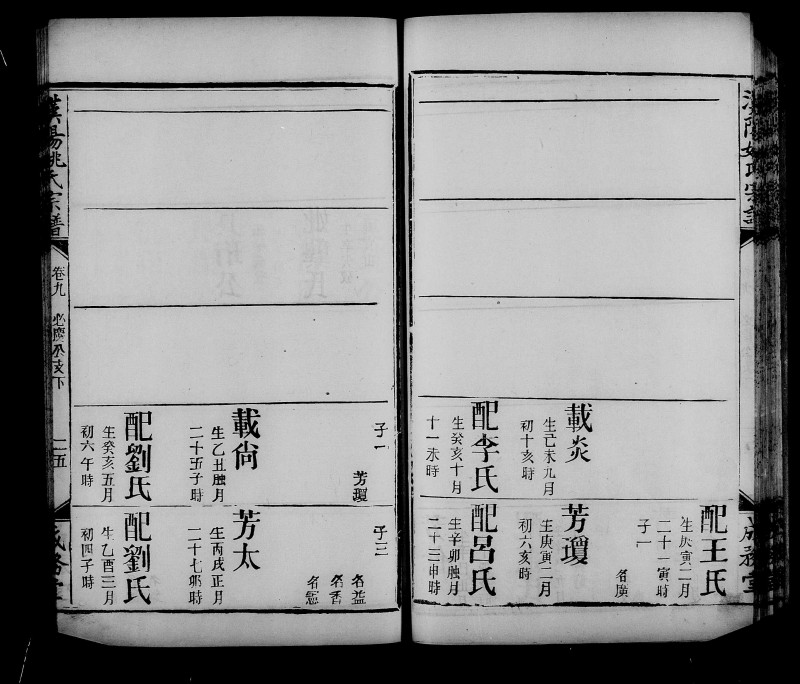 漢陽姚氏宗譜
成務堂
配王氏
生庚寅二月
二十一寅時
子一
名廣
載炎
生己未九月
初十亥時
配李氏
生癸亥十月
十一未時
芳瓊
生庚寅二月
初六亥時
配呂氏
生辛卯臘月
二十三申時
子一
芳瓊
載尙
生乙丑臘月
二十五子時
配劉氏
生癸亥五月
初六午時
子三
名益
名香
名憲
芳太
生丙戌正月
二十七卯時
配劉氏
生乙酉三月
初四子時
漢陽姚氏宗譜
卷九
必慶公支下
二五
成務堂